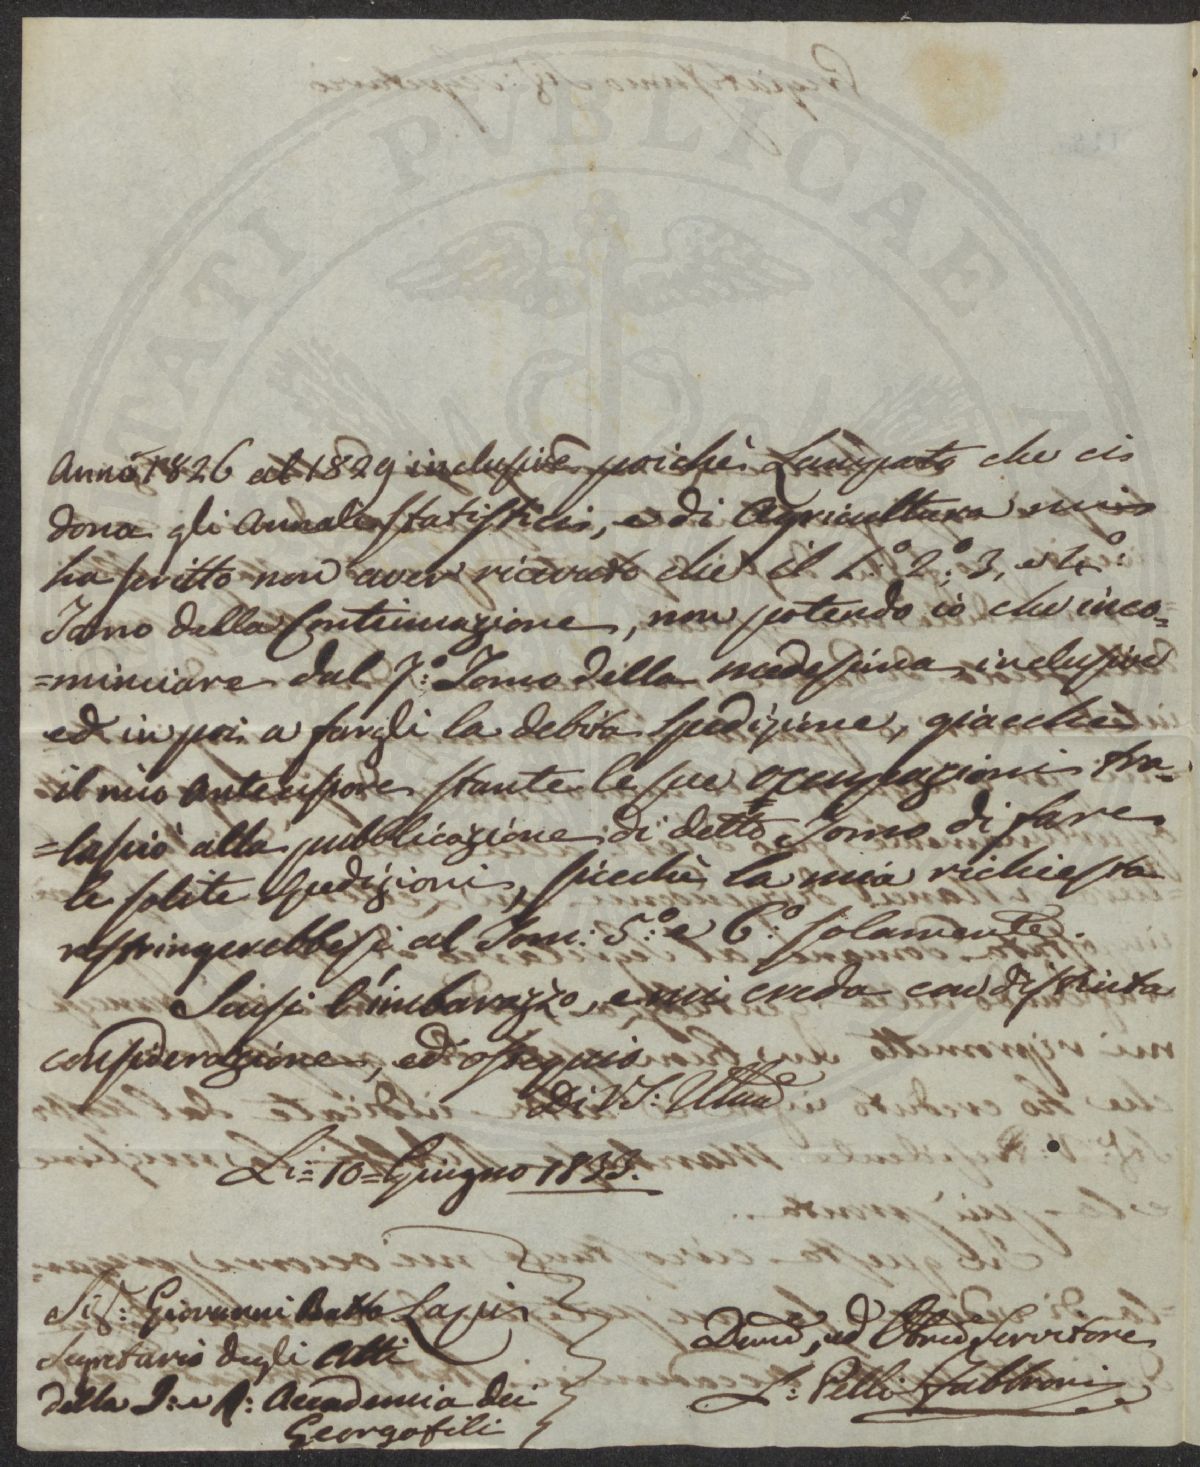 PVBLICAE
Anno 1826 al 1829 inclusive poiche Lampato che ci
dona gli Annali statistici, e di Agricultura mi
ha scritto non aver ricevuto che il 1.º 2.º; 3, e 4.º:
Tomo della Continuazione, non potendo io che inco=
=minciare dal 7.º: Tomo della medesima inclusive
ed in poi a fargli la debita spedizione, giacche
il mio Antecessore stante le sue occupazioni tra=
=lasciò alla pubblicazione di detto Tomo di fare
le solite spedizioni, sicchè la mia richiesta
restringerebbesi al Tom: 5.º e 6.º: solamente.
Scusi l'imbarazzo, e mi creda con distinta
considerazione, ed ossequio
Di VS: Illma
Li= 10= Giugno 1833.
Sig: Giovanni Batta Lapi
Segretario degli Atti
della I: e R: Accademia dei
Georgofili
Devmo, ed Obbmo Servitore
L: Pelli Fabbroni